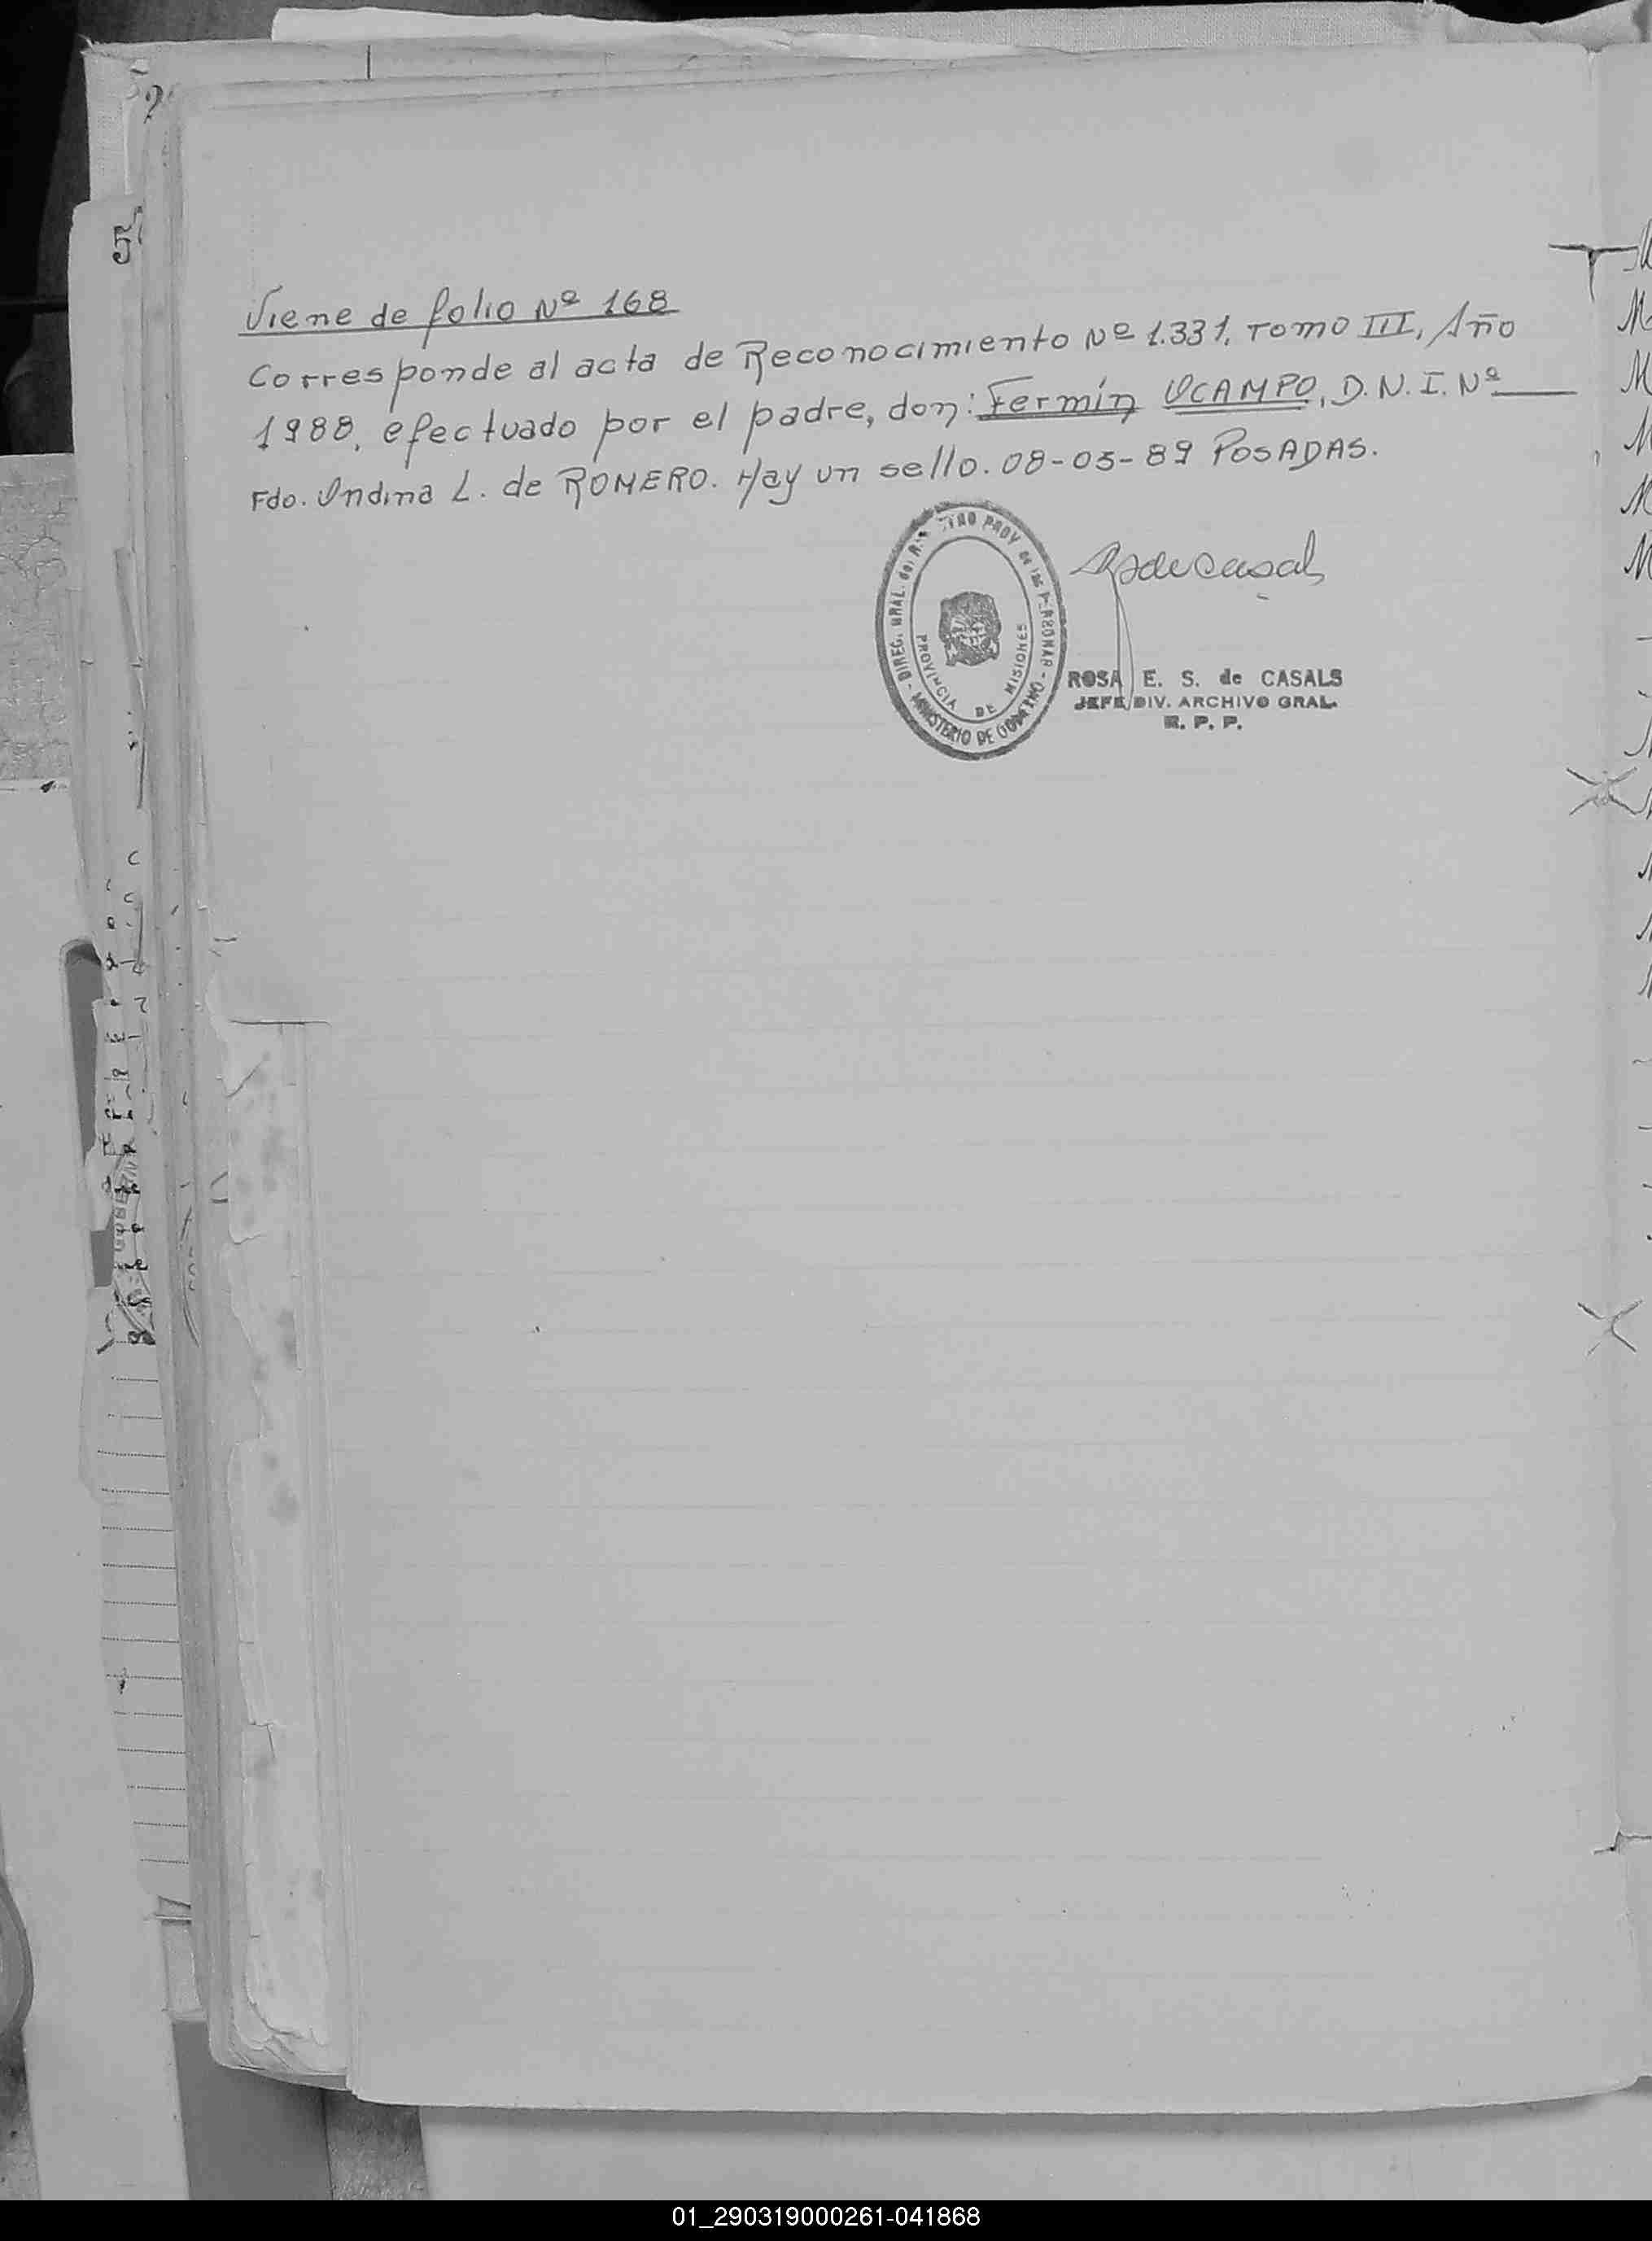 Viene de folio Nº 168
Corresponde al acta de Reconocimiento Nº 1.331, Tomo III, Año
1988, efectuado por el padre, don: Fermín OCAMPO, D.N.I. Nº
Fdo. Ondina L. de ROMERO. Hay un sello. 08-03-89 POSADAS.
PROVINCIA DE MISIONES
MINISTERIO DE GOBIERNO
ROSA E. S. de CASALS
JEFE DIV. ARCHIVO GRAL.
R. P. P.
01_290319000261-041868